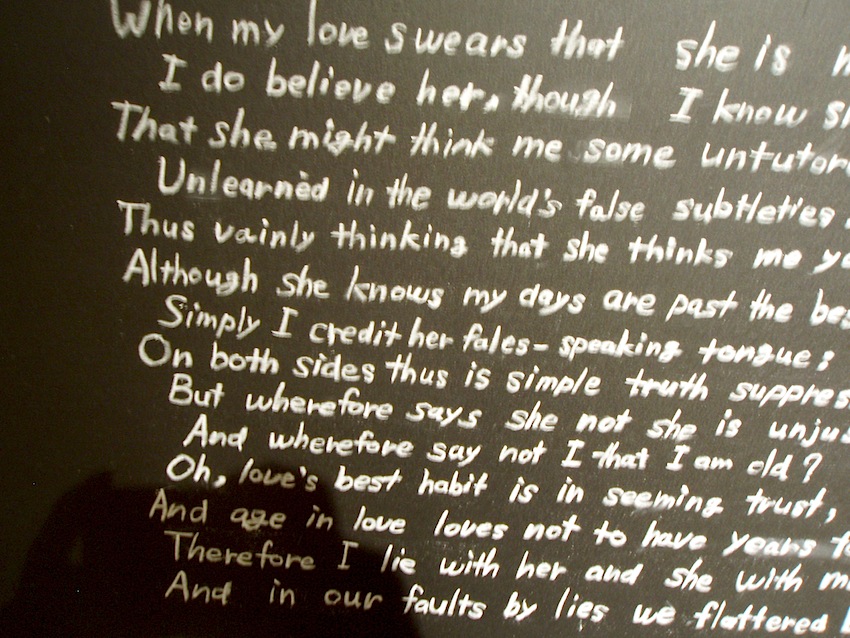 When my love swears that she is
I do believe her, though I know
That she might think me some untutor
Unlearnèd in the world's false subtleties.
Thus vainly thinking that she thinks me yo
Although she knows my days are past the bes
Simply I credit her fales-speaking tongue:
On both sides thus is simple truth suppres
But wherefore says she not she is unjus
And wherefore say not I that I am old?
Oh, love's best habit is in seeming trust,
And age in love loves not to have years to
Therefore I lie with her and she with m
And in our faults by lies we flattered